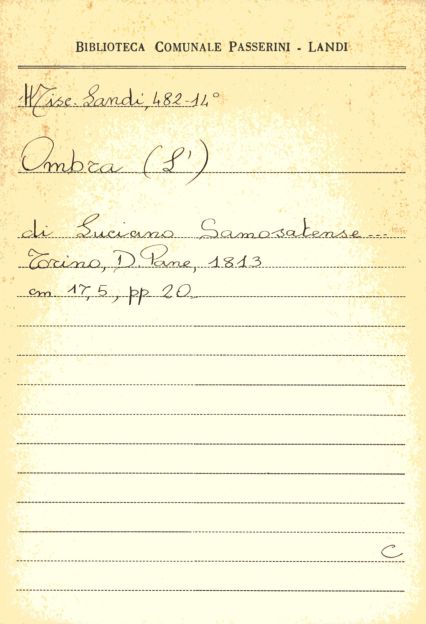 BIBLIOTECA COMUNALE PASSERINI - LANDI
Misc. Landi, 482-14°
Ombra (L')
di Luciano Samosatense ...
Torino, D. Pane, 1813
cm. 17,5, pp 20
C